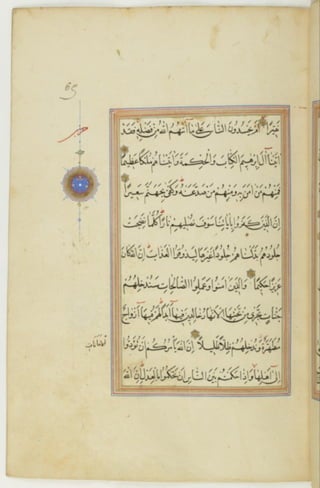 نقيرا ام يحسدون الناس على ما آتيهم الله من فضله فقد
آتينا آل ابرهيم الكتاب والحكمة وآتيناهم ملكا عظيما
فمنهم من امن به ومنهم من صد عنه وكفى بجهنم سعيرا
ان الذين كفروا باياتنا سوف نصليهم نارا كلما نضجت
جلودهم بدلناهم جلودا غيرها ليذوقوا العذاب ان الله كان
عزيزا حكيما والذين امنوا وعملوا الصالحات سندخلهم
جنات تجري من تحتها الانهار خالدين فيها ابدا لهم فيها ازواج
مطهرة وندخلهم ظلا ظليلا ان الله يأمركم ان تؤدوا
الامانات
الى اهلها واذا حكمتم بين الناس ان تحكموا بالعدل ان الله